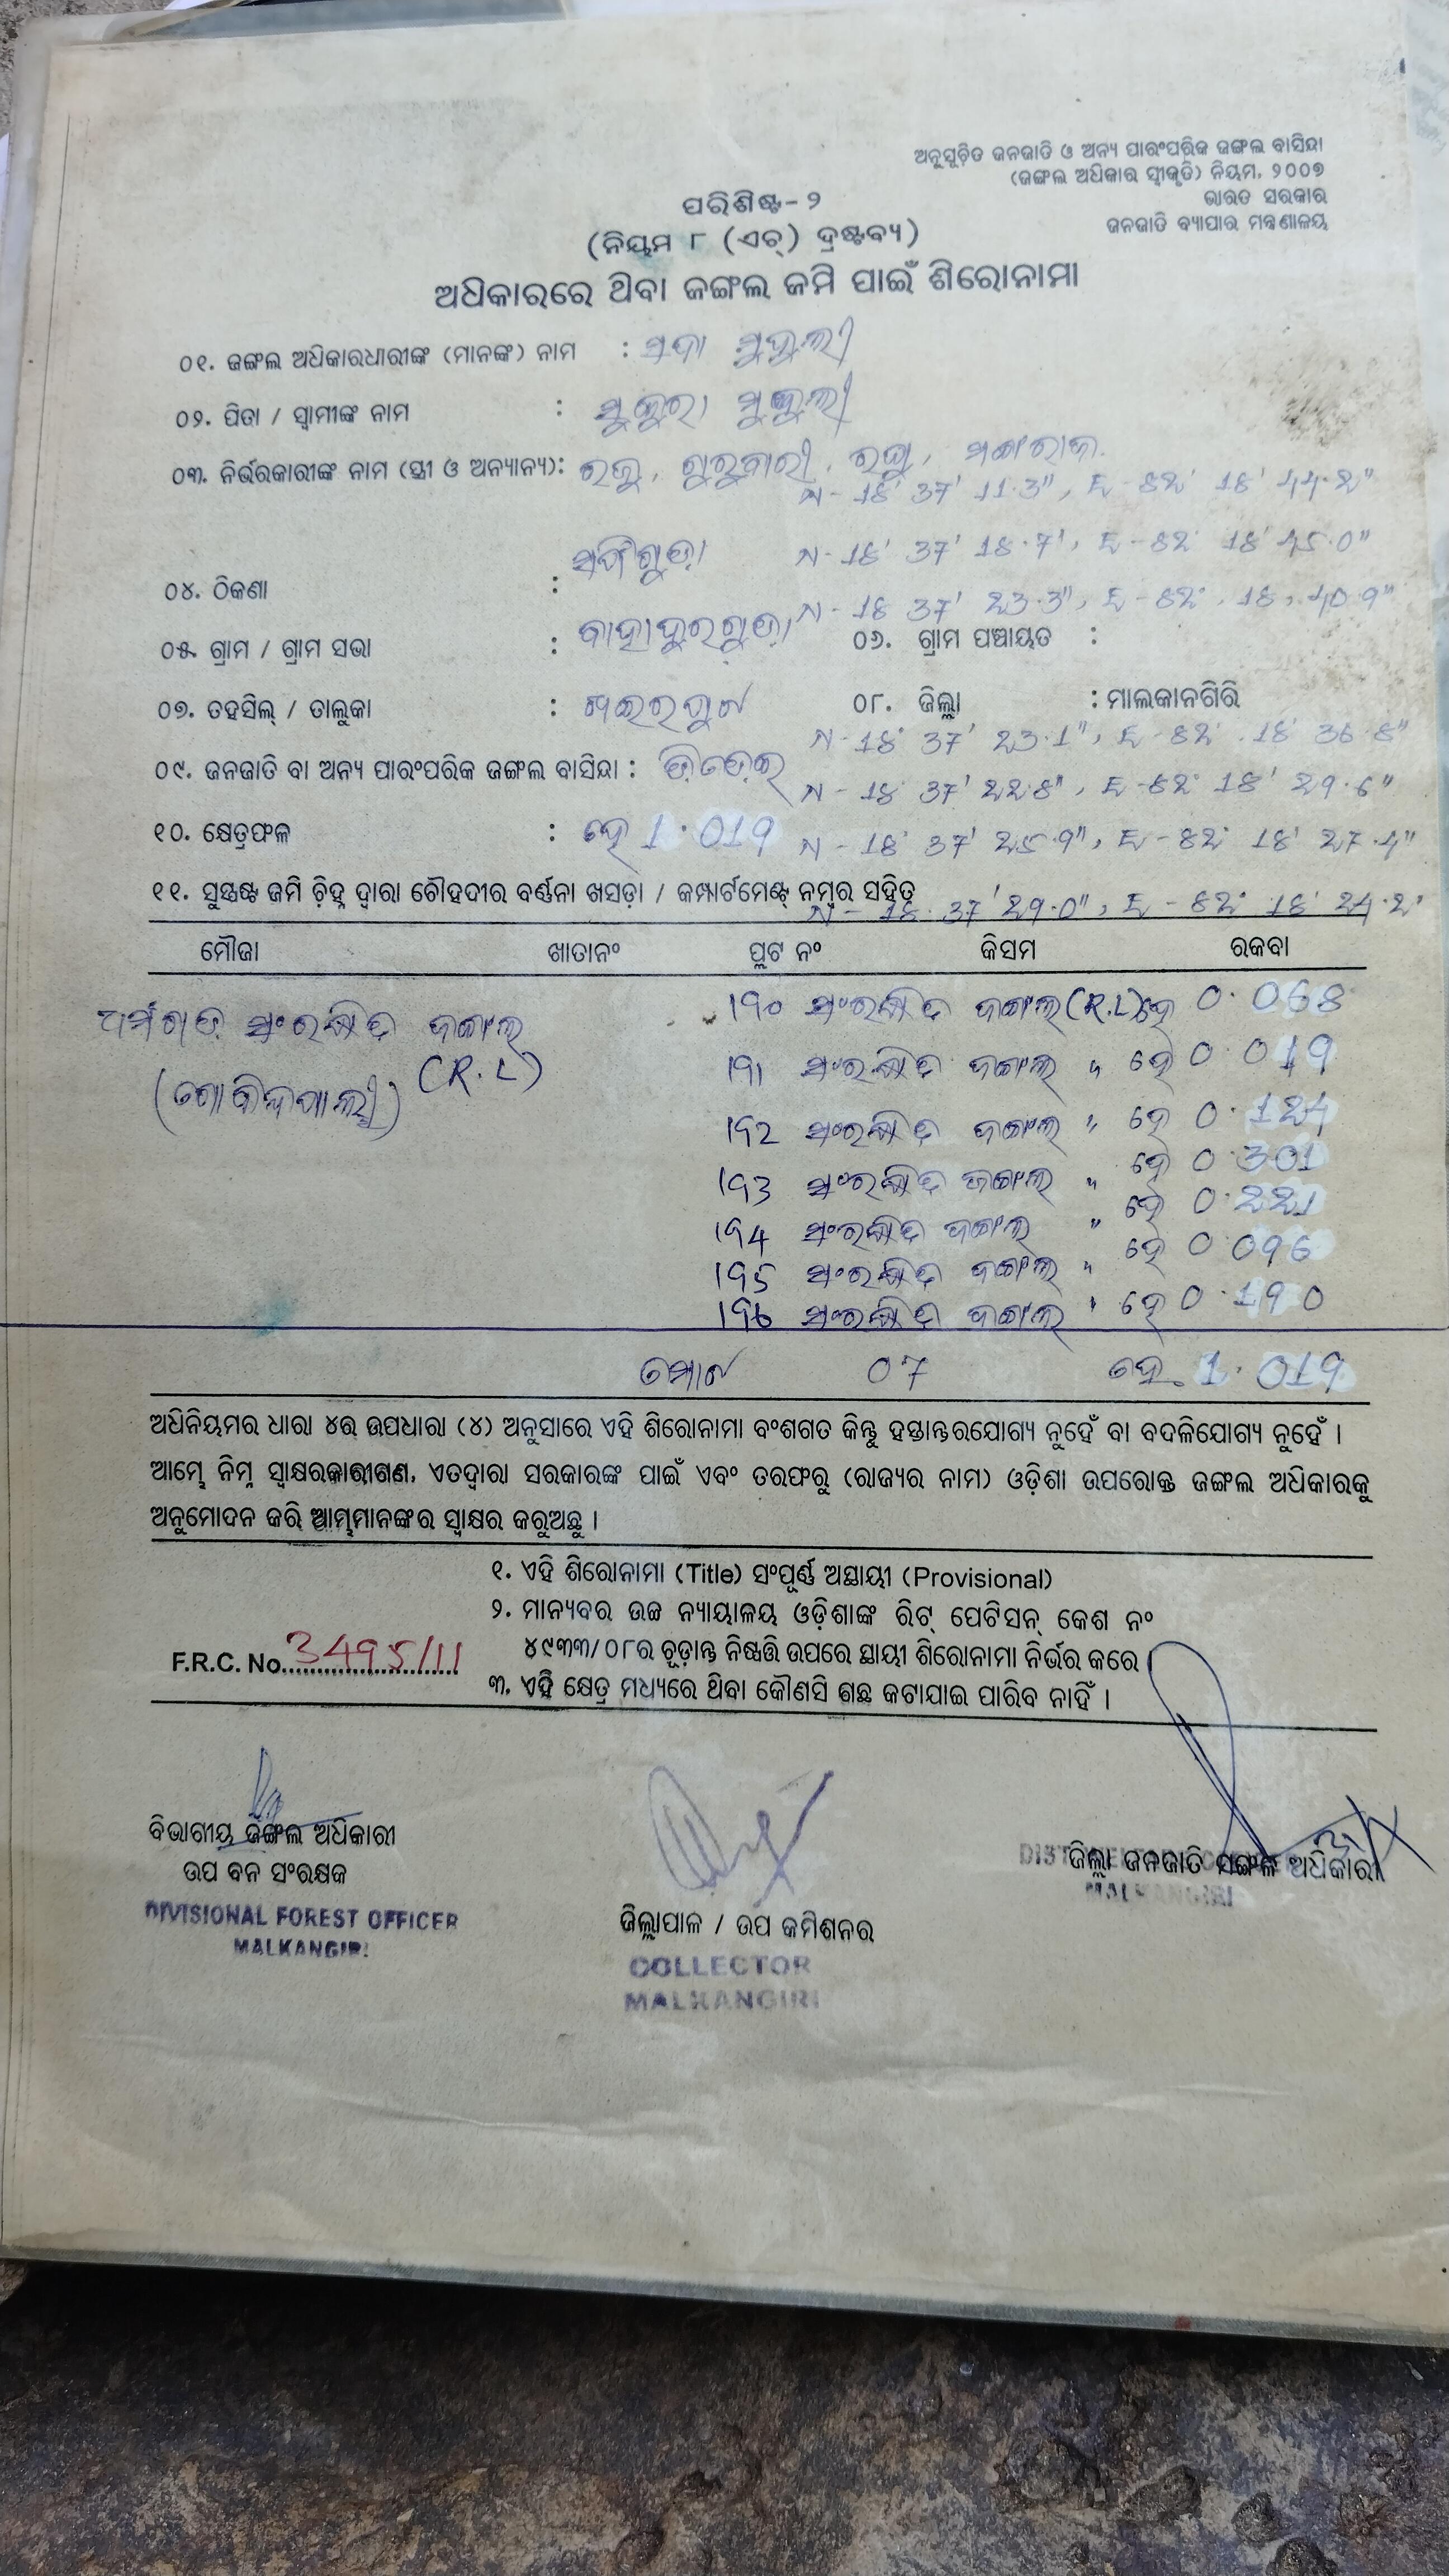 ଅନୁସୂଚିତ ଜନଜାତି ଓ ଅନ୍ୟ ପାରଂପରିକ ଜଙ୍ଗଲ ବାସିନ୍ଦା
(ଜଙ୍ଗଲ ଅଧିକାର ସ୍ୱୀକୃତି) ନିୟମ, ୨୦୦୭
ଭାରତ ସରକାର
ଜନଜାତି ବ୍ୟାପାର ମନ୍ତ୍ରଣାଳୟ
ପରିଶିଷ୍ଟ-୨
(ନିୟମ ୮ (ଏଚ୍) ଦ୍ରଷ୍ଟବ୍ୟ)
ଅଧିକାରରେ ଥିବା ଜଙ୍ଗଲ ଜମି ପାଇଁ ଶିରୋନାମା
୦୧. ଜଙ୍ଗଲ ଅଧିକାରଧାରୀଙ୍କ (ମାନଙ୍କ) ନାମ :
୦୨. ପିତା / ସ୍ୱାମୀଙ୍କ ନାମ :
୦୩. ନିର୍ଭରକାରୀଙ୍କ ନାମ (ସ୍ତ୍ରୀ ଓ ଅନ୍ୟାନ୍ୟ):
N-18° 37' 11.3", E-82° 18' 44.2"
N-18° 37' 18.7', E-82° 18' 45.0"
୦୪. ଠିକଣା :
N-18 37' 23.3", E-82° 18, 40.9"
୦୫. ଗ୍ରାମ / ଗ୍ରାମ ସଭା : ବାହାଦୁରଗୁଡ଼ା ୦୬. ଗ୍ରାମ ପଞ୍ଚାୟତ :
୦୭. ତହସିଲ୍ / ତାଲୁକା : ଖଇରପୁଟ ୦୮. ଜିଲ୍ଲା : ମାଲକାନଗିରି
N-18° 37' 23.1", E-82° 18' 36.8"
୦୯. ଜନଜାତି ବା ଅନ୍ୟ ପାରଂପରିକ ଜଙ୍ଗଲ ବାସିନ୍ଦା :
N-18° 37' 22.8", E-82° 18' 29.6"
୧୦. କ୍ଷେତ୍ରଫଳ : ହେ 1.019 N-18° 37' 25.9", E-82° 18' 27.4"
୧୧. ସୁସ୍ପଷ୍ଟ ଜମି ଚିହ୍ନ ଦ୍ୱାରା ଚୌହଦୀର ବର୍ଣ୍ଣନା ଖସଡ଼ା / କମ୍ପାର୍ଟମେଣ୍ଟ୍ ନମ୍ବର ସହିତ
N-18 37' 29.0", E-82° 18' 24.2"
ମୌଜା ଖାତାନଂ ପ୍ଲଟ ନଂ କିସମ ରକବା
ସଂରକ୍ଷିତ ଜଙ୍ଗଲ
(R.L)
(ଗୋବିନ୍ଦପାଲ୍ଲୀ)
ସଂରକ୍ଷିତ ଜଙ୍ଗଲ (R.L) ହେ 0.068
ସଂରକ୍ଷିତ ଜଙ୍ଗଲ " ହେ 0.019
ସଂରକ୍ଷିତ ଜଙ୍ଗଲ " ହେ 0.124
ସଂରକ୍ଷିତ ଜଙ୍ଗଲ " ହେ 0.301
ସଂରକ୍ଷିତ ଜଙ୍ଗଲ " ହେ 0.221
ସଂରକ୍ଷିତ ଜଙ୍ଗଲ " ହେ 0.096
ସଂରକ୍ଷିତ ଜଙ୍ଗଲ " ହେ 0.190
ମୋଟ 07 ହେ. 1.019
ଅଧିନିୟମର ଧାରା ୪ର ଉପଧାରା (୪) ଅନୁସାରେ ଏହି ଶିରୋନାମା ବଂଶଗତ କିନ୍ତୁ ହସ୍ତାନ୍ତରଯୋଗ୍ୟ ନୁହେଁ ବା ବଦଳିଯୋଗ୍ୟ ନୁହେଁ ।
ଆମ୍ଭେ ନିମ୍ନ ସ୍ୱାକ୍ଷରକାରୀଗଣ, ଏତଦ୍ୱାରା ସରକାରଙ୍କ ପାଇଁ ଏବଂ ତରଫରୁ (ରାଜ୍ୟର ନାମ) ଓଡ଼ିଶା ଉପରୋକ୍ତ ଜଙ୍ଗଲ ଅଧିକାରକୁ
ଅନୁମୋଦନ କରି ଆମ୍ଭମାନଙ୍କର ସ୍ୱାକ୍ଷର କରୁଅଛୁ ।
୧. ଏହି ଶିରୋନାମା (Title) ସଂପୂର୍ଣ୍ଣ ଅସ୍ଥାୟୀ (Provisional)
୨. ମାନ୍ୟବର ଉଚ୍ଚ ନ୍ୟାୟାଳୟ ଓଡ଼ିଶାଙ୍କ ରିଟ୍ ପେଟିସନ୍ କେଶ ନଂ
୪୯୩୩/୦୮ର ଚୂଡ଼ାନ୍ତ ନିଷ୍ପତ୍ତି ଉପରେ ସ୍ଥାୟୀ ଶିରୋନାମା ନିର୍ଭର କରେ ।
F.R.C. No. 3495/11
୩. ଏହି କ୍ଷେତ୍ର ମଧ୍ୟରେ ଥିବା କୌଣସି ଗଛ କଟାଯାଇ ପାରିବ ନାହିଁ ।
ବିଭାଗୀୟ ଜଙ୍ଗଲ ଅଧିକାରୀ
ଉପ ବନ ସଂରକ୍ଷକ
DIVISIONAL FOREST OFFICER
MALKANGIRI
ଜିଲ୍ଲାପାଳ / ଉପ କମିଶନର
COLLECTOR
MALKANGIRI
ଜିଲ୍ଲା ଜନଜାତି ମଙ୍ଗଳ ଅଧିକାରୀ
MALKANGIRI